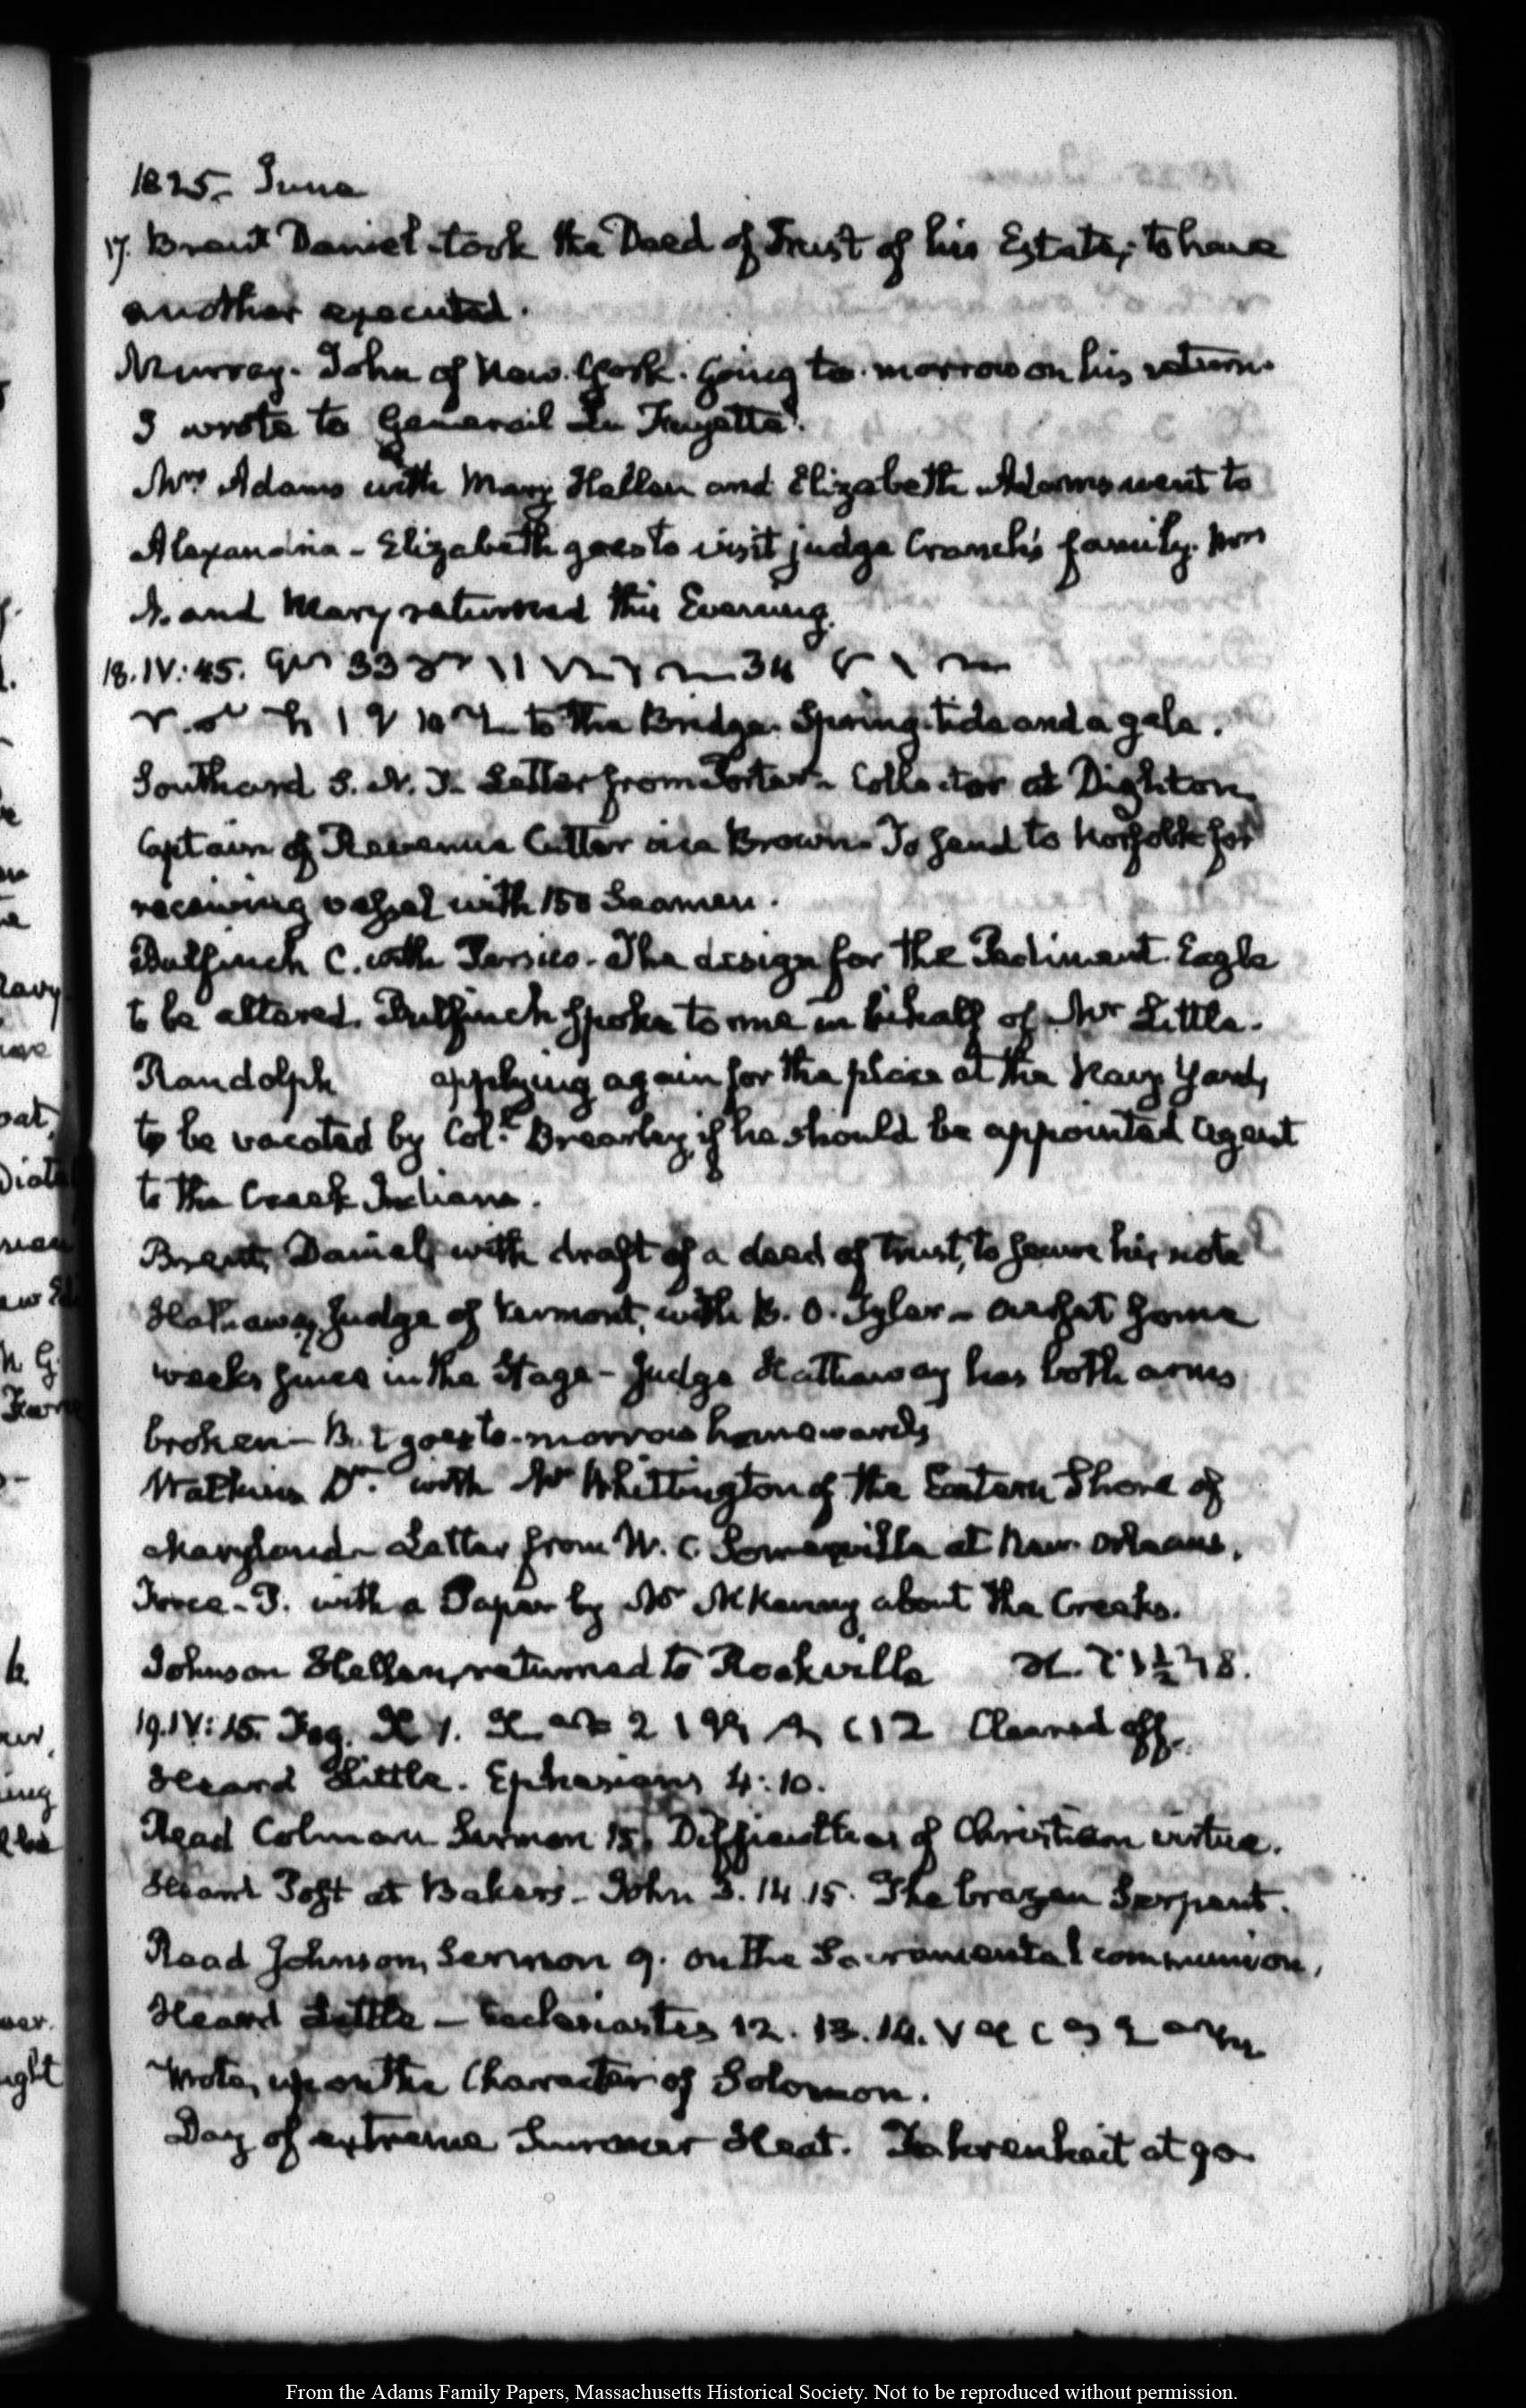 1825. June
17. Brent Daniel took the Deed of Trust of his Estate, to have
another executed.
Murray. John of New-York. Going to-morrow on his return.
I wrote to General La Fayette.
Mrs Adams with Mary Hellen and Elizabeth Adams went to
Alexandria - Elizabeth goes to visit judge Cranch's family. Mrs
A. and Mary returned this Evening.
18. IV:45.
to the Bridge. Spring-tide and a gale.
Southard S. N. D. Letter from Porter. Collector at Dighton
Captain of Revenue Cutter vice Brown. To send to Norfolk for
receiving vessel with 150 Seamen.
Bulfinch C. with Persico. The design for the Pediment. Eagle
to be altered. Bulfinch spoke to me in behalf of Mr Little.
Randolph applying again for the place at the Navy Yard,
to be vacated by Col. Brearley, if he should be appointed Agent
to the Creek Indians.
Brent, Daniel, with draft of a deed of trust, to secure his note
Hathaway, Judge of Vermont, with B. O. Tyler - overset some
weeks since in the Stage - Judge Hathaway has both arms
broken - But goes to-morrow homewards
Watkins Dr. with Mr Whittington of the Eastern Shore of
Maryland - Letter from W. C. Somerville at New-Orleans.
Force - P. with a Paper by Mr McKenney about the Creeks.
Johnson Hellen, returned to Rockville
19. IV:15. Fog. Cleared off.
Heard Little. Ephesians 4:10.
Read Colman Sermon 15. Difficulties of Christian virtue.
Heard Post at Baker's - John 3. 14.15. The brazen Serpent.
Read Johnson, Sermon 9. on the Sacramental communion,
Heard Little - Ecclesiastes 12. 13.14.
Wrote, upon the Character of Solomon.
Day of extreme Summer Heat. Fahrenheit at 90
From the Adams Family Papers, Massachusetts Historical Society. Not to be reproduced without permission.